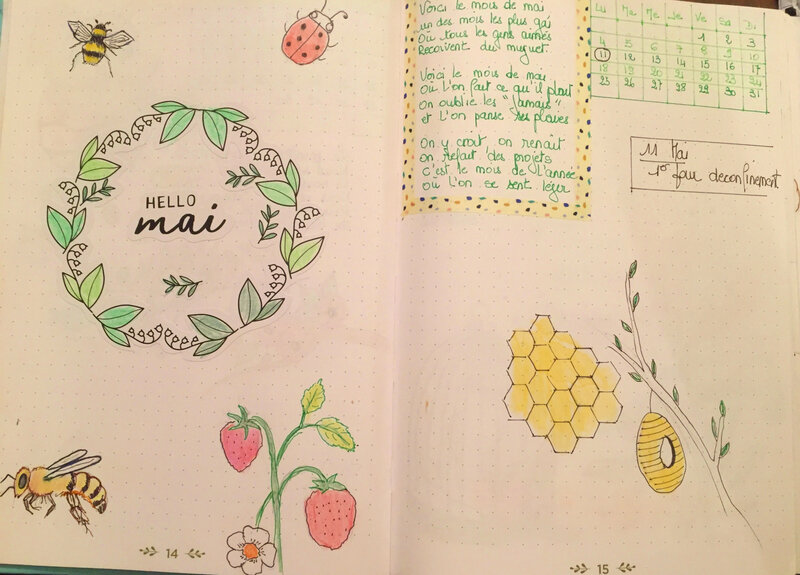 HELLO
mai
14
Voici le mois de mai
un des mois les plus gai
Où tous les gens aimés
Recoivent du muguet.
Voici le mois de mai
Où L'on fait ce qu'il plait
On oublie les "jamais"
et L'on panse ses plaies
On y croit, on renait
on refait des projets
c'est le mois de L'année
où L'on se sent léger
Lu Ma Me Je Ve Sa Di
1 2 3
4 5 6 7 8 9 10
11 12 13 14 15 16 17
18 19 20 21 22 23 24
25 26 27 28 29 30 31
11 Mai
1er Jour deconfinement
15